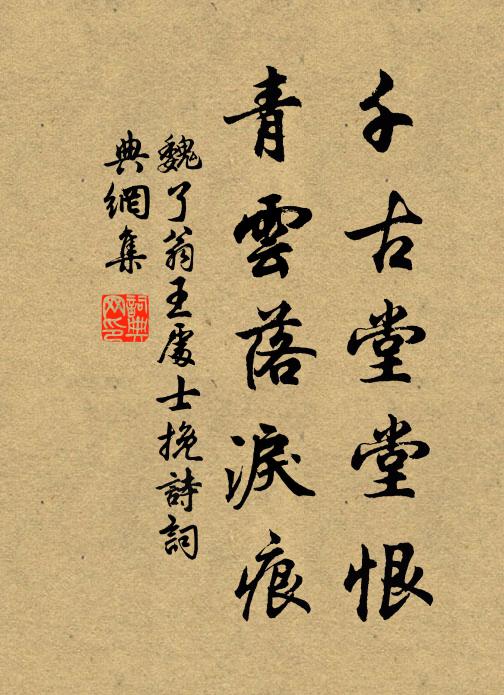 千古堂堂恨
青雲落淚痕
魏了翁王處士挽詩詞
典網集
詞典網印